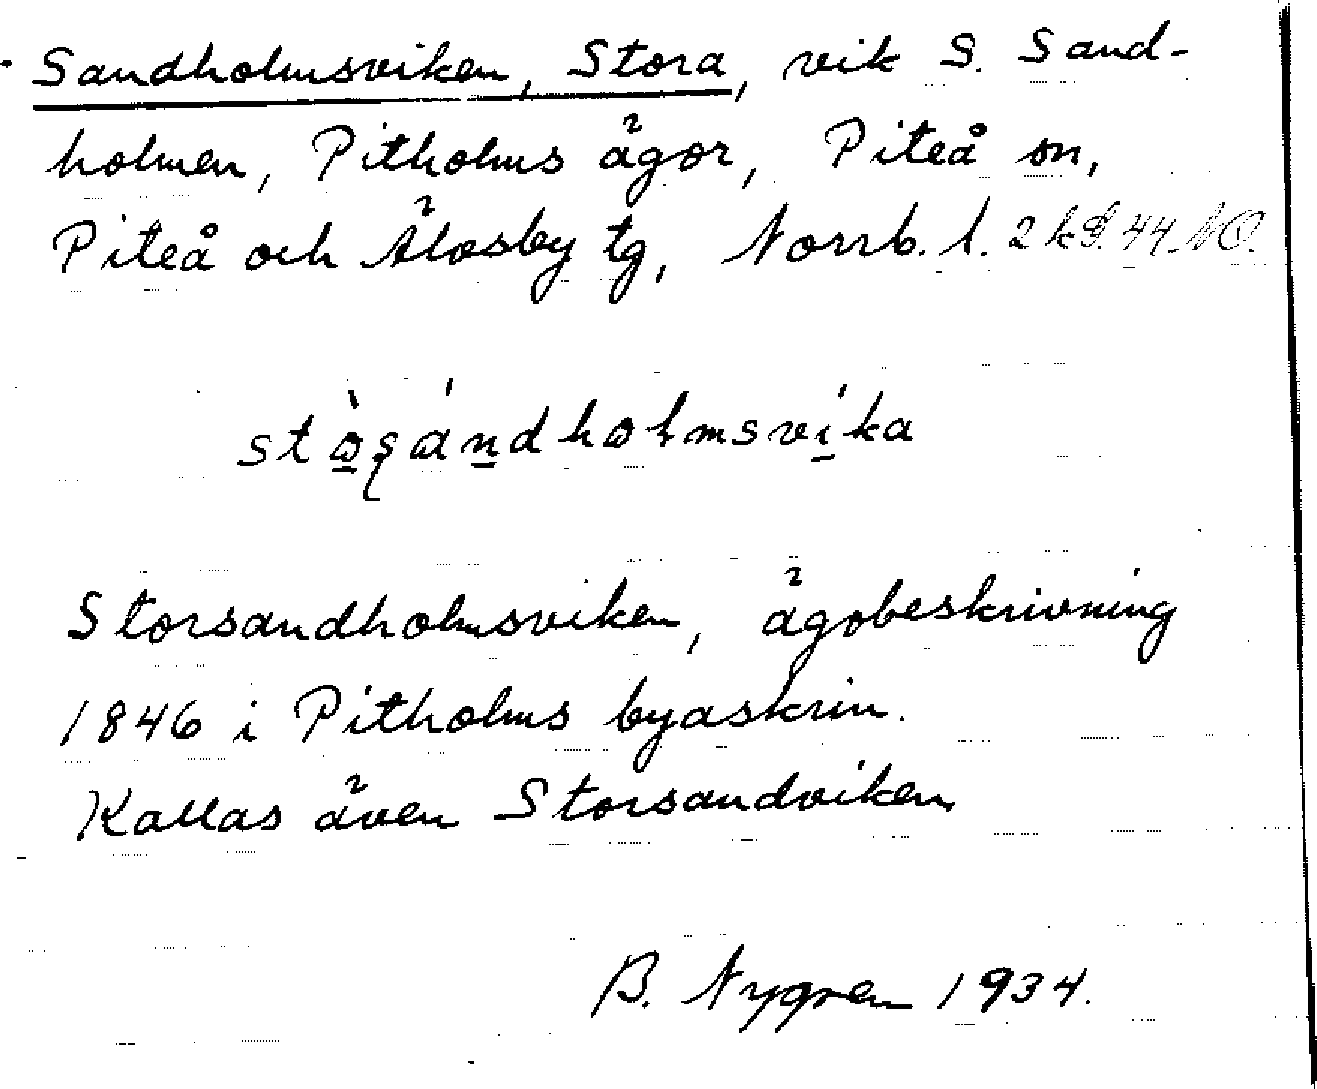 Sandholmsviken, Stora, vik S. Sand-
holmen, Pitholms ägor, Piteå sn,
Piteå och Älvsby tg, Norrb. l. 2 k G. 44. NO.
stòṣándholmsvíka
Storsandholmsviken, ägobeskrivning
1846 i Pitholms byaskrin.
Kallas även Storsandviken
B. Nygren 1934.